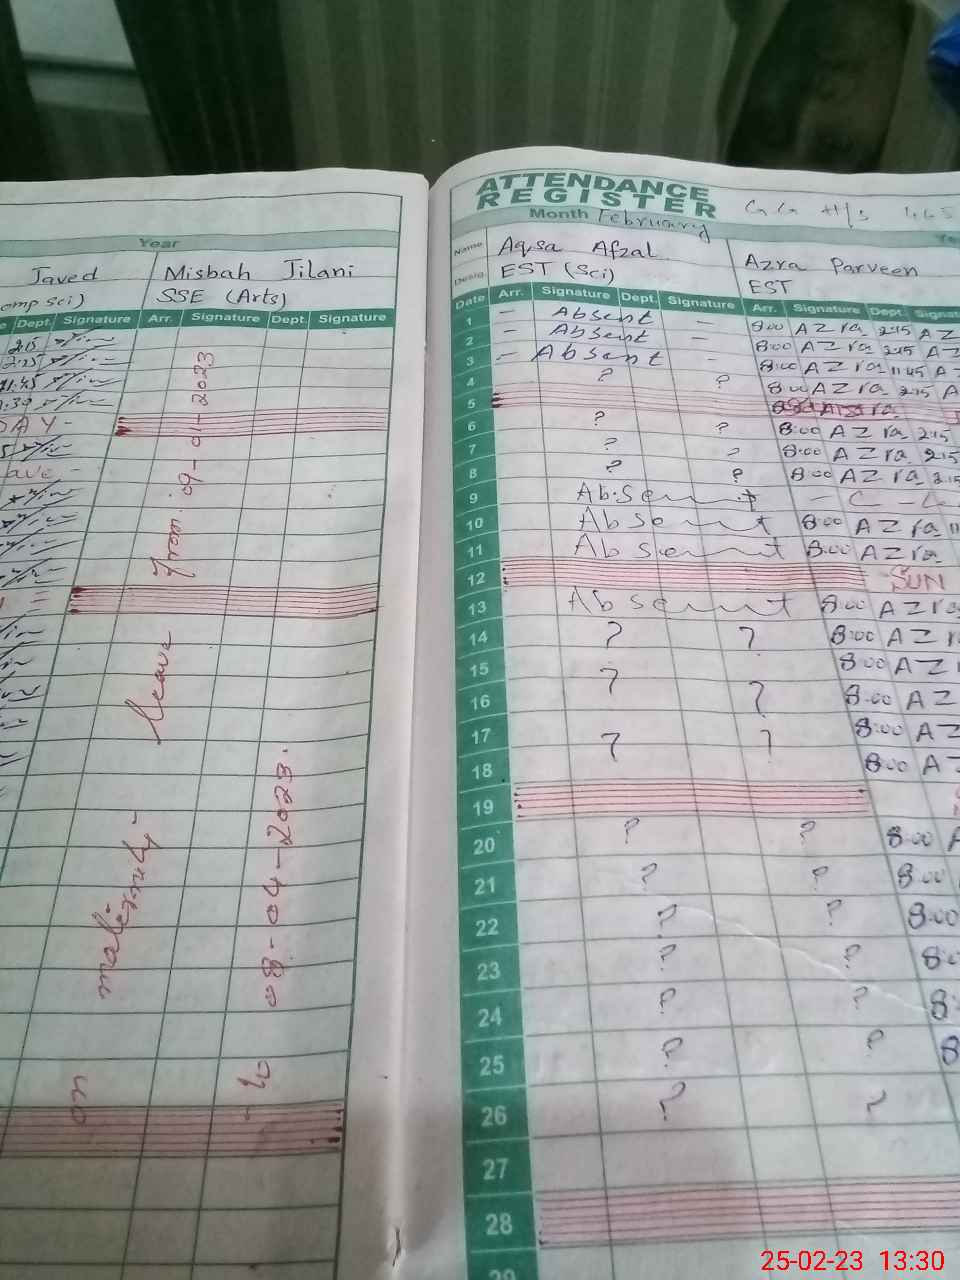 Year
Javed
Misbah Jilani
omp Sci)
SSE (Arts)
Dept. Signature Arr. Signature Dept. Signature
2:15
2:15
11:45
DAY -
ave -
on maternity - leave from 09-01-2023
to 08-04-2023.
ATTENDANCE
REGISTER
Month February
Name Aqsa Afzal
Azra Parveen
Desig. EST (Sci)
EST
Date Arr. Signature Dept. Signature Arr. Signature Dept. Signat
1 - Absent - 8:00 AZra 2:15 AZ
2 - Absent - 8:00 AZra 2:15 AZ
3 - Absent - 8:00 AZra 11:45 A
4 ? ? 8:00 AZra 2:15 A
5
6 ? ? 8:00 AZra 2:15
7 ? ? 8:00 AZra 2:15
8 ? ? 8:00 AZra 2:15
9 Absent - C - L
10 Absent 8:00 AZra 11
11 Absent 8:00 AZra
12 SUN
13 Absent 8:00 AZra
14 ? ? 8:00 AZ
15 ? 8:00 AZ
16 ? 8:00 AZ
17 ? ? 8:00 AZ
18 8:00 AZ
19
20 ? ? 8:00 A
21 ? ? 8:00
22 ? ? 8:00
23 ? ? 8:0
24 ? ? 8:
25 ? ? 8
26 ? ?
27
28
29
25-02-23 13:30